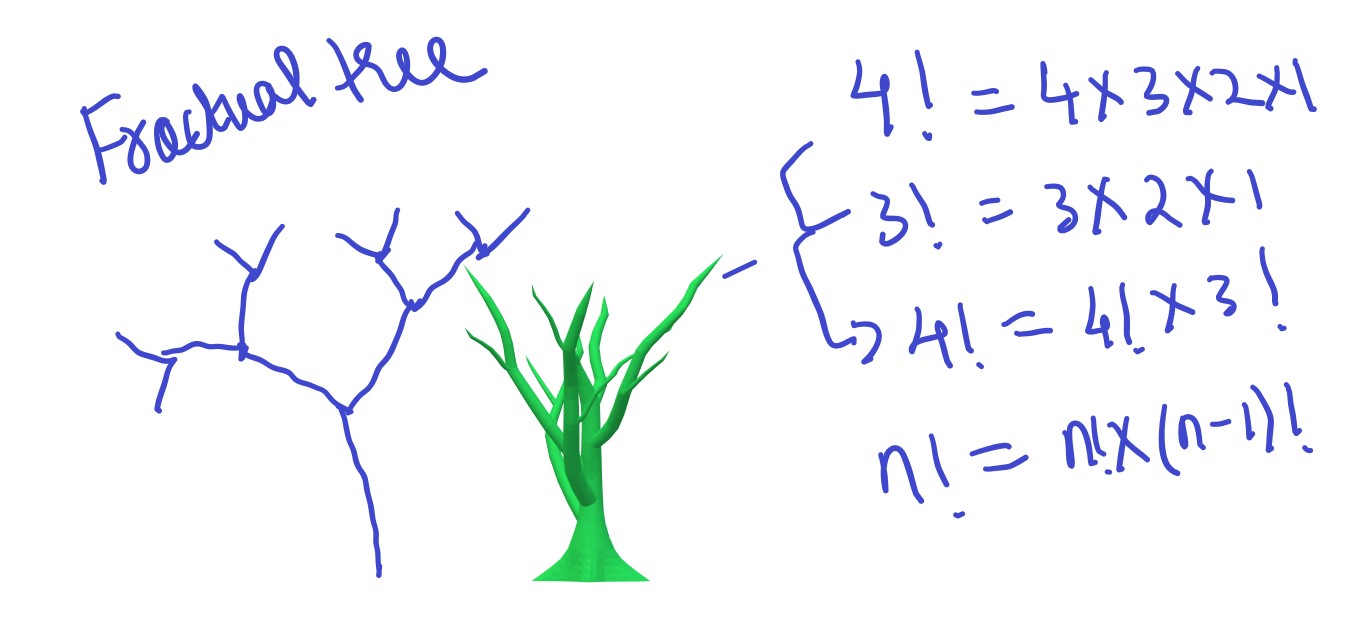 Fractual tree
4! = 4×3×2×1
3! = 3×2×1
4! = 4!×3!
n! = n!×(n-1)!